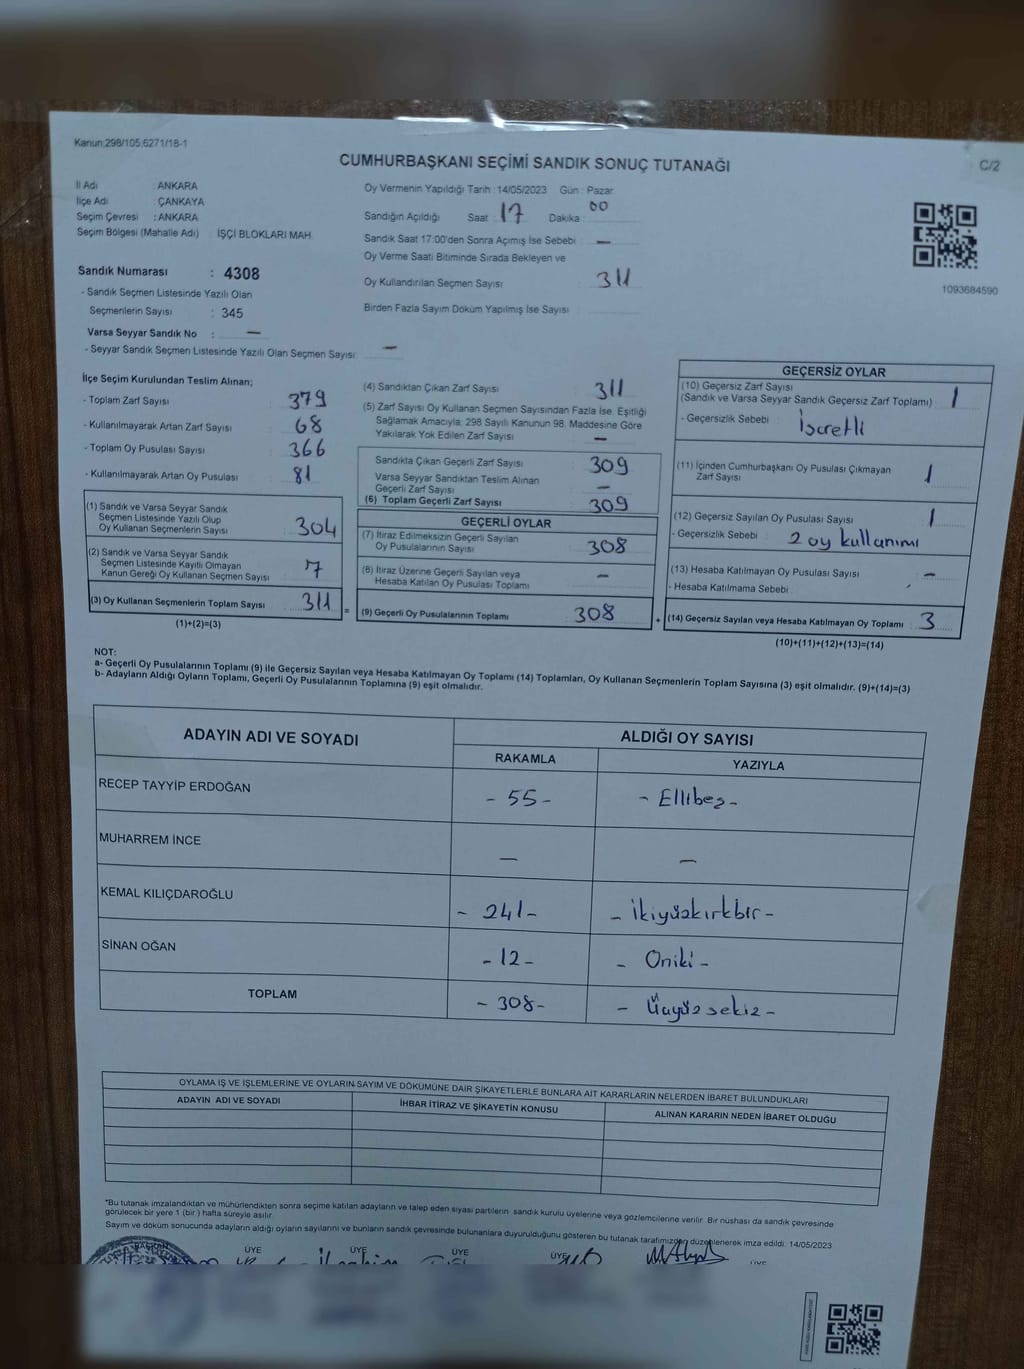 Kanun:298/105,6271/18-1
CUMHURBAŞKANI SEÇİMİ SANDIK SONUÇ TUTANAĞI
C/2
İl Adı : ANKARA
İlçe Adı : ÇANKAYA
Seçim Çevresi : ANKARA
Seçim Bölgesi (Mahalle Adı) : İŞÇİ BLOKLARI MAH.
Sandık Numarası : 4308
- Sandık Seçmen Listesinde Yazılı Olan
Seçmenlerin Sayısı : 345
Varsa Seyyar Sandık No : —
- Seyyar Sandık Seçmen Listesinde Yazılı Olan Seçmen Sayısı: —
Oy Vermenin Yapıldığı Tarih : 14/05/2023 Gün : Pazar
Sandığın Açıldığı Saat 17 Dakika 00
Sandık Saat 17:00'den Sonra Açmış İse Sebebi : —
Oy Verme Saati Bitiminde Sırada Bekleyen ve
Oy Kullandırılan Seçmen Sayısı : 311
Birden Fazla Sayım Döküm Yapılmış İse Sayısı :
1093684590
İlçe Seçim Kurulundan Teslim Alınan;
- Toplam Zarf Sayısı : 379
- Kullanılmayarak Artan Zarf Sayısı : 68
- Toplam Oy Pusulası Sayısı : 366
- Kullanılmayarak Artan Oy Pusulası : 81
(1) Sandık ve Varsa Seyyar Sandık
Seçmen Listesinde Yazılı Olup
Oy Kullanan Seçmenlerin Sayısı : 304
(2) Sandık ve Varsa Seyyar Sandık
Seçmen Listesinde Kayıtlı Olmayan
Kanun Gereği Oy Kullanan Seçmen Sayısı : 7
(3) Oy Kullanan Seçmenlerin Toplam Sayısı : 311 =
(1)+(2)=(3)
(4) Sandıktan Çıkan Zarf Sayısı : 311
(5) Zarf Sayısı Oy Kullanan Seçmen Sayısından Fazla İse, Eşitliği
Sağlamak Amacıyla; 298 Sayılı Kanunun 98. Maddesine Göre
Yakılarak Yok Edilen Zarf Sayısı : —
Sandıkta Çıkan Geçerli Zarf Sayısı : 309
Varsa Seyyar Sandıktan Teslim Alınan
Geçerli Zarf Sayısı : —
(6) Toplam Geçerli Zarf Sayısı : 309
GEÇERLİ OYLAR
(7) İtiraz Edilmeksizin Geçerli Sayılan
Oy Pusulalarının Sayısı : 308
(8) İtiraz Üzerine Geçerli Sayılan veya
Hesaba Katılan Oy Pusulası Toplamı : —
(9) Geçerli Oy Pusulalarının Toplamı : 308 +
GEÇERSİZ OYLAR
(10) Geçersiz Zarf Sayısı
(Sandık ve Varsa Seyyar Sandık Geçersiz Zarf Toplamı) : 1
- Geçersizlik Sebebi : İşaretli
(11) İçinden Cumhurbaşkanı Oy Pusulası Çıkmayan
Zarf Sayısı : 1
(12) Geçersiz Sayılan Oy Pusulası Sayısı : 1
- Geçersizlik Sebebi : 2 oy kullanımı
(13) Hesaba Katılmayan Oy Pusulası Sayısı : —
- Hesaba Katılmama Sebebi :
(14) Geçersiz Sayılan veya Hesaba Katılmayan Oy Toplamı : 3
(10)+(11)+(12)+(13)=(14)
NOT:
a- Geçerli Oy Pusulalarının Toplamı (9) ile Geçersiz Sayılan veya Hesaba Katılmayan Oy Toplamı (14) Toplamları, Oy Kullanan Seçmenlerin Toplam Sayısına (3) eşit olmalıdır. (9)+(14)=(3)
b- Adayların Aldığı Oyların Toplamı, Geçerli Oy Pusulalarının Toplamına (9) eşit olmalıdır.
ADAYIN ADI VE SOYADI ALDIĞI OY SAYISI
RAKAMLA YAZIYLA
RECEP TAYYİP ERDOĞAN - 55 - - Ellibeş -
MUHARREM İNCE — —
KEMAL KILIÇDAROĞLU - 241 - - İkiyüzkırkbir -
SİNAN OĞAN - 12 - - Oniki -
TOPLAM - 308 - - Üçyüzsekiz -
OYLAMA İŞ VE İŞLEMLERİNE VE OYLARIN SAYIM VE DÖKÜMÜNE DAİR ŞİKAYETLERLE BUNLARA AİT KARARLARIN NELERDEN İBARET BULUNDUKLARI
ADAYIN ADI VE SOYADI İHBAR İTİRAZ VE ŞİKAYETİN KONUSU ALINAN KARARIN NEDEN İBARET OLDUĞU
*Bu tutanak imzalandıktan ve mühürlendikten sonra seçime katılan adayların ve talep eden siyasi partilerin sandık kurulu üyelerine veya gözlemcilerine verilir. Bir nüshası da sandık çevresinde
görülecek bir yere 1 (bir ) hafta süreyle asılır.
Sayım ve döküm sonucunda adayların aldığı oyların sayılarını ve bunların sandık çevresinde bulunanlara duyurulduğunu gösteren bu tutanak tarafımızdan düzenlenerek imza edildi. 14/05/2023
ÜYE ÜYE ÜYE ÜYE ÜYE